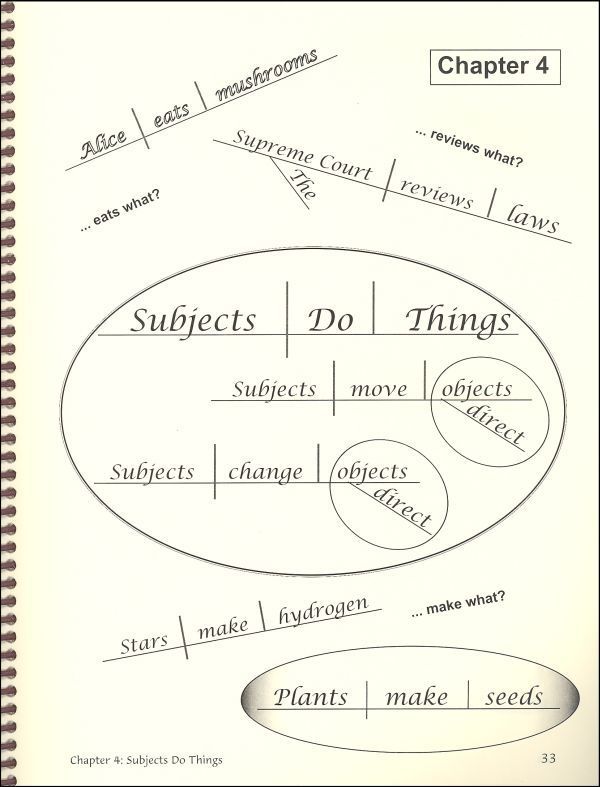 Chapter 4
Alice eats mushrooms
... eats what?
... reviews what?
Supreme Court reviews laws
The
Subjects Do Things
Subjects move objects
direct
Subjects change objects
direct
Stars make hydrogen
... make what?
Plants make seeds
Chapter 4: Subjects Do Things
33